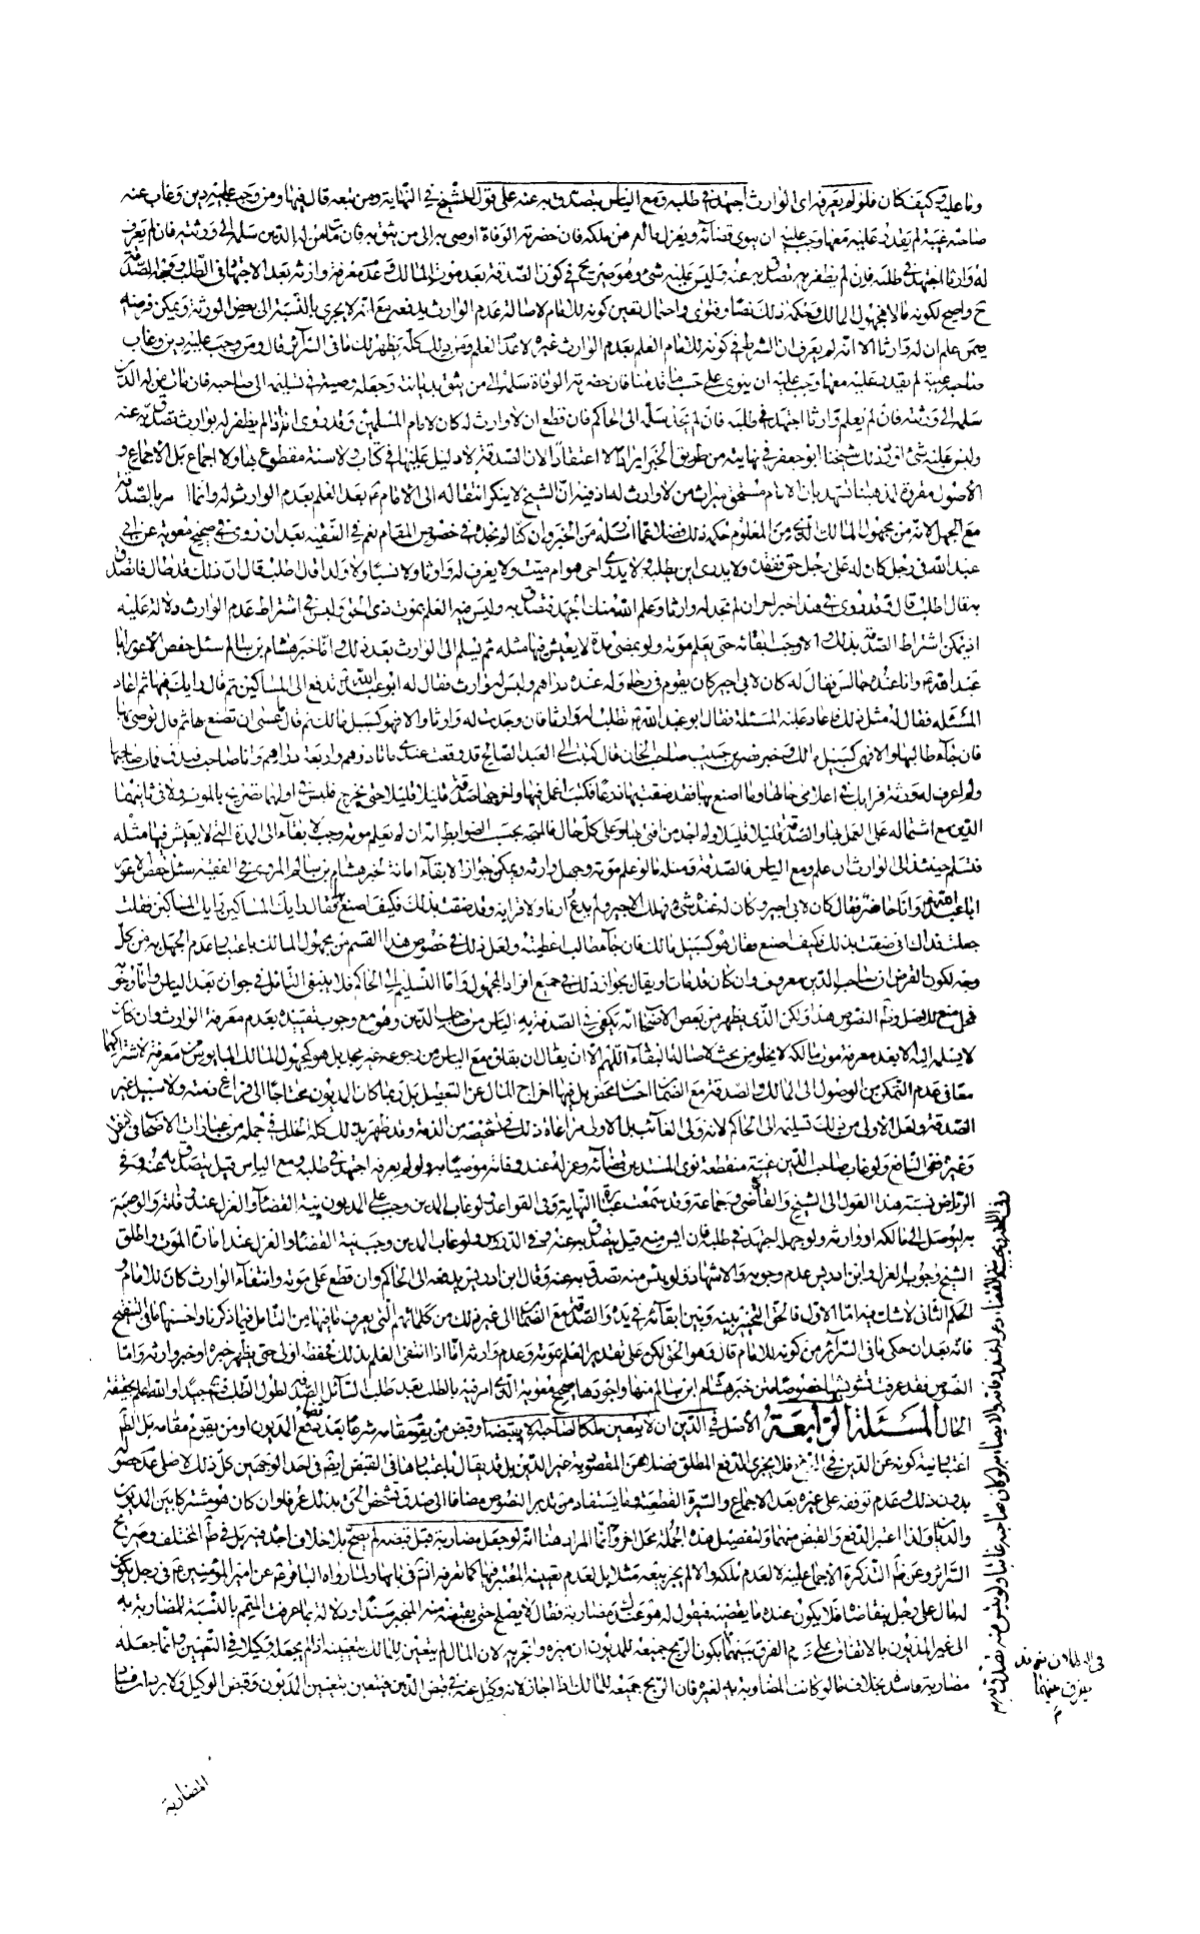 وما عليه وكيف كان فلو لم يعرفه اى الوارث اجتهد فى طلبه ومع الياس يتصدق به عنه على قول للشيخ فى النهاية ومن تبعه قال فيها ومن وجب عليه دين وغاب عنه
صاحبه غيبة لم يقدر عليه معها وجب عليه ان ينوى قضائه ويعزل ماله من ملكه فان حضرته الوفاة اوصى به الى من يثق به فان مات من له الدين سلمه الى ورثته فان لم يعرف
له وارثا اجتهد فى طلبه فان لم يظفر به تصدق به عنه وليس عليه شئ وهو صريح فى كون الصدقة بعد موت المالك وعدم معرفة وارثه بعد الاجتهاد فى الطلب ووجه الصدقة
ح واضح لكونه مالا مجهول المالك وحكمه ذلك نصا وفتوى واحتمال تعين كونه للامام لاصالة عدم الوارث يدفعه مع انه لا يجرى بالنسبة الى بعض الورثة ويمكن فرضه
فيمن علم ان له وارثا الا انه لم يعرف ان الشرط فى كونه للامام العلم بعدم الوارث غيره لا عدم العلم ومن ذلك كله يظهر لك ما فى السرائر قال ومن وجب عليه دين وغاب
صاحبه غيبة لم يقدر عليه معها وجب عليه ان ينوى على حسب ما قدمنا فان حضرته الوفاة سلمه الى من يثق بديانته وجعله وصيه فى تسليمه الى صاحبه فان مات من له الدين
سلمه الى ورثته فان لم يعلم وارثا اجتهد فى طلبه فان لم يجد سلمه الى الحاكم فان قطع ان لا وارث له كان لامام المسلمين وقد روى انه اذا لم يظفر له بوارث تصدق به عنه
وليس عليه شئ اورد ذلك شيخنا ابو جعفر فى نهايته من طريق الخبر ايرادا لا اعتقادا لان الصدقة لا دليل عليها فى كتاب ولا سنة مقطوع بها ولا اجماع بل الاجماع و
الاصول مقررة لمذهبنا تشهد بان الامام مستحق ميراث من لا وارث له اذ فيه ان الشيخ لا ينكر انتقاله الى الامام ع بعد العلم بعدم الوارث له وانما امر بالصدقة
مع الجهل لانه من مجهول المالك الذى من المعلوم حكمه ذلك فضلا عما ارسله من الخبر وان كنا لم نجده فى خصوص المقام نعم فى الفقيه بعد ان روى فى صحيح معوية عن ابى
عبد الله فى رجل كان له على رجل حق ففقد ولا يدرى اين يطلبه ولا يدرى احى هو ام ميت ولا يعرف له وارثا ولا نسبا ولا ولدا قال اطلب قال ان ذلك قد طال فاتصدق
به قال اطلب قال وقد روى فى هذا خبر اخر ان لم تجد له وارثا وعلم الله منك الجهد فتصدق به وليس فيه العلم بموت ذى الحق وليس فى اشتراط عدم الوارث دلالة عليه
اذ يمكن اشتراط الصدقة بذلك والا وجب ابقائه حتى يعلم موته ولو بمضى مدة لا يعيش فيها مثله ثم يسلم الى الوارث بعد ذلك واما خبر هشام بن سالم سئل حفص الاعور ابا
عبد الله ع وانا عنده جالس فقال له كان لابى اجير كان يقوم فى رحاه وله عنده دراهم وليس له وارث فقال له ابو عبد الله ع تدفع الى المساكين ثم قال رايك فيها ثم اعاد
المسئلة فقال له مثل ذلك فاعاد عليه المسئلة فقال ابو عبد الله ع تطلب له وارثا فان وجدت له وارثا والا فهو كسبيل مالك ثم قال ما عسى ان تصنع بها ثم قال توصى بها
فان جاء طالبها والا فهى كسبيل مالك وخبر نصر بن حبيب صاحب الخان قال كتبت الى العبد الصالح قد وقعت عندى مائتا درهم واربعة دراهم وانا صاحب فندق فمات صاحبها
ولم اعرف له ورثة فرايك فى اعلامى حالها وما اصنع بها فقد ضقت بها ذرعا فكتب اعمل فيها واخرجها صدقة قليلا قليلا حتى يخرج فليس فى اولهما تصريح بالموت ولا فى ثانيهما
الدين مع اشتماله على العمل بها والصدقة قليلا قليلا ولم اجد من افتى بها وعلى كل حال فالمتجه بحسب الضوابط انه ان لم يعلم موته وجب الابقاء الى المدة التى لا يعيش فيها مثله
فتسلم حينئذ الى الوارث ان علم ومع الياس فالصدقة ومثله ما لو علم موته وجهل وارثه ويمكن جواز الابقاء امانة لخبر هشام بن سالم المروى فى الفقيه سئل حفص الاعور
ابا عبد الله ع وانا حاضر فقال كان لابى اجير وكان له عنده شئ فهلك الاجير ولم يدع وارثا ولا قرابة وقد ضقت بذلك فكيف اصنع فقال رايك المساكين رايك المساكين فقلت
جعلت فداك انى ضقت بذلك كيف اصنع فقال هو كسبيل مالك فان جاء طالب اعطيته ولعل ذلك فى خصوص هذا القسم من مجهول المالك باعتبار عدم الجهل به من كل
وجه لكون الفرض ان صاحب الدين معروف وان كان قد مات ويقال بجواز ذلك فى جميع افراد المجهول واما التسليم الى الحاكم فلا ينبغى التامل فى جوازه بعد الياس واما وجوبه
فمحل منع للاصل وظاهر النصوص هذا ولكن الذى يظهر من بعض الاصحاب انه يكفى فى الصدقة به الياس من صاحب الدين وهو مع وجوب تقييده بعدم معرفة الوارث وان كان
لا يسلم اليه الا بعد معرفة موت مالكه لا يخلو من بحث لاصالة البقاء اللهم الا ان يقال ان بقائه مع الياس من رجوعه غير مجد بل هو كمجهول المالك المايوس من معرفته لاشتراكهما
معا فى عدم التمكن من الوصول الى المالك والصدقة مع الضمان احسان محض بل فيها اخراج المال عن التعطيل بل ربما كان المديون محتاجا الى فراغ ذمته ولا سبيل غير
الصدقة ولعل الاولى من ذلك تسليمه الى الحاكم لانه ولى الغائب بل الاولى مراعاة ذلك فى تشخيصه من الذمة وقد ظهر بذلك كله الخلل فى جملة من عبارات الاصحاب
وغيره ففى النافع ولو غاب صاحب الدين غيبة منقطعة نوى المستدين قضائه وعزله عند وفاته موصيا به ولو لم يعرفه اجتهد فى طلبه ومع الياس قيل يتصدق به عنه وفى
الرياض نسبة هذا القول الى الشيخ والقاضى وجماعة وقد سمعت عبارة النهاية وفى القواعد لو غاب المدين وجب على المديون نية القضاء والعزل عند وفاته والوصية
به ليوصل الى مالكه او وارثه ولو جهله اجتهد فى طلبه فان ايس منه قيل يتصدق به عنه وفى الدروس لو غاب المدين وجب نية القضاء والعزل عند امارة الموت واطلق
الشيخ وجوب العزل وابن ادريس عدم وجوبه والاشهاد ولو يئس منه تصدق به عنه وقال ابن ادريس يدفعه الى الحاكم وان قطع على موته وانتفاء الوارث كان للامام و
الحكم الثانى لا شك فيه اما الاول فالحق التخيير بينه وبين ابقائه فى يده والصدقة مع الضمان الى غير ذلك من كلماتهم التى يعرف ما فيها من التامل فيما ذكرنا واحسنها ما فى التنقيح
فانه بعد ان حكى ما فى السرائر من كونه للامام قال وهو الحق لكن على تقدير العلم بموته وعدم وارثه اما اذا انتفى العلم بذلك فحفظه اولى حتى يظهر خبره او خبر وارثه واما
النصوص فقد عرفت تشويشها خصوصا متن خبر هشام ابن سالم منها واجودها صحيح معوية الذى امر فيه بالطلب بعد طلب السائل الصدقة لطول الطلب فتامل جيدا والله اعلم بحقيقة
الحال المسئلة الرابعة الاصل فى الدين ان لا يتعين ملكا لصاحبه الا بقبضه او قبض من يقوم مقامه شرعا بعد دفع المديون او من يقوم مقامه بل الظاهر
اعتبار نية كونه عن الدين فى الدفع فلا يجزى الدفع المطلق فضلا عن المقصود به غير الدين بل قد يقال باعتبارها فى القبض ايضا فى احد الوجهين كل ذلك لاصل عدم حصوله
بدون ذلك وعدم توقفه على غيره بعد الاجماع والسيرة القطعية وما يستفاد من تدبر النصوص مضافا الى صدق تشخص الحق بذلك عرفا وان كان هو مشتركا بين المديون
والديان ولذا اعتبر الدفع والقبض منهما ولتفصيل هذه الجملة محل اخر وانما المراد هنا انه لو جعل مضاربة قبل قبضه لم يصح بلا خلاف اجده فيه بل فى ظاهر المختلف وصريح
السرائر وعن ظاهر التذكرة الاجماع عليه لا لعدم ملكه والا لم يجز بيعه مثلا بل لعدم تعينه المعتبر فيها كما تعرفه انشاء فى بابها ولما رواه الباقر ع عن امير المؤمنين ع فى رجل يكون
له مال على رجل يتقاضاه فلا يكون عنده ما يقضيه فيقول له هو عندك مضاربة فقال لا يصلح حتى يقبضه منه المنجبر سندا ودلالة بما عرفت المتمم بالنسبة للمضاربة به
الى غير المديون بالاتفاق على عدم الفرق بينهما بكون الربح جميعه للمديون ان ميزه واتجر به لان المال لم يتعين للمالك بتعينه اذ لم يجعله وكيلا فى التعيين وانما جعله
مضاربة فاسدة بخلاف ما لو كانت المضاربة به لغيره فان الربح جميعه للمالك اذا اجاز لانه وكيل عنه فى قبض الدين فيتعين بتعيين المديون وقبض الوكيل
المضاربة